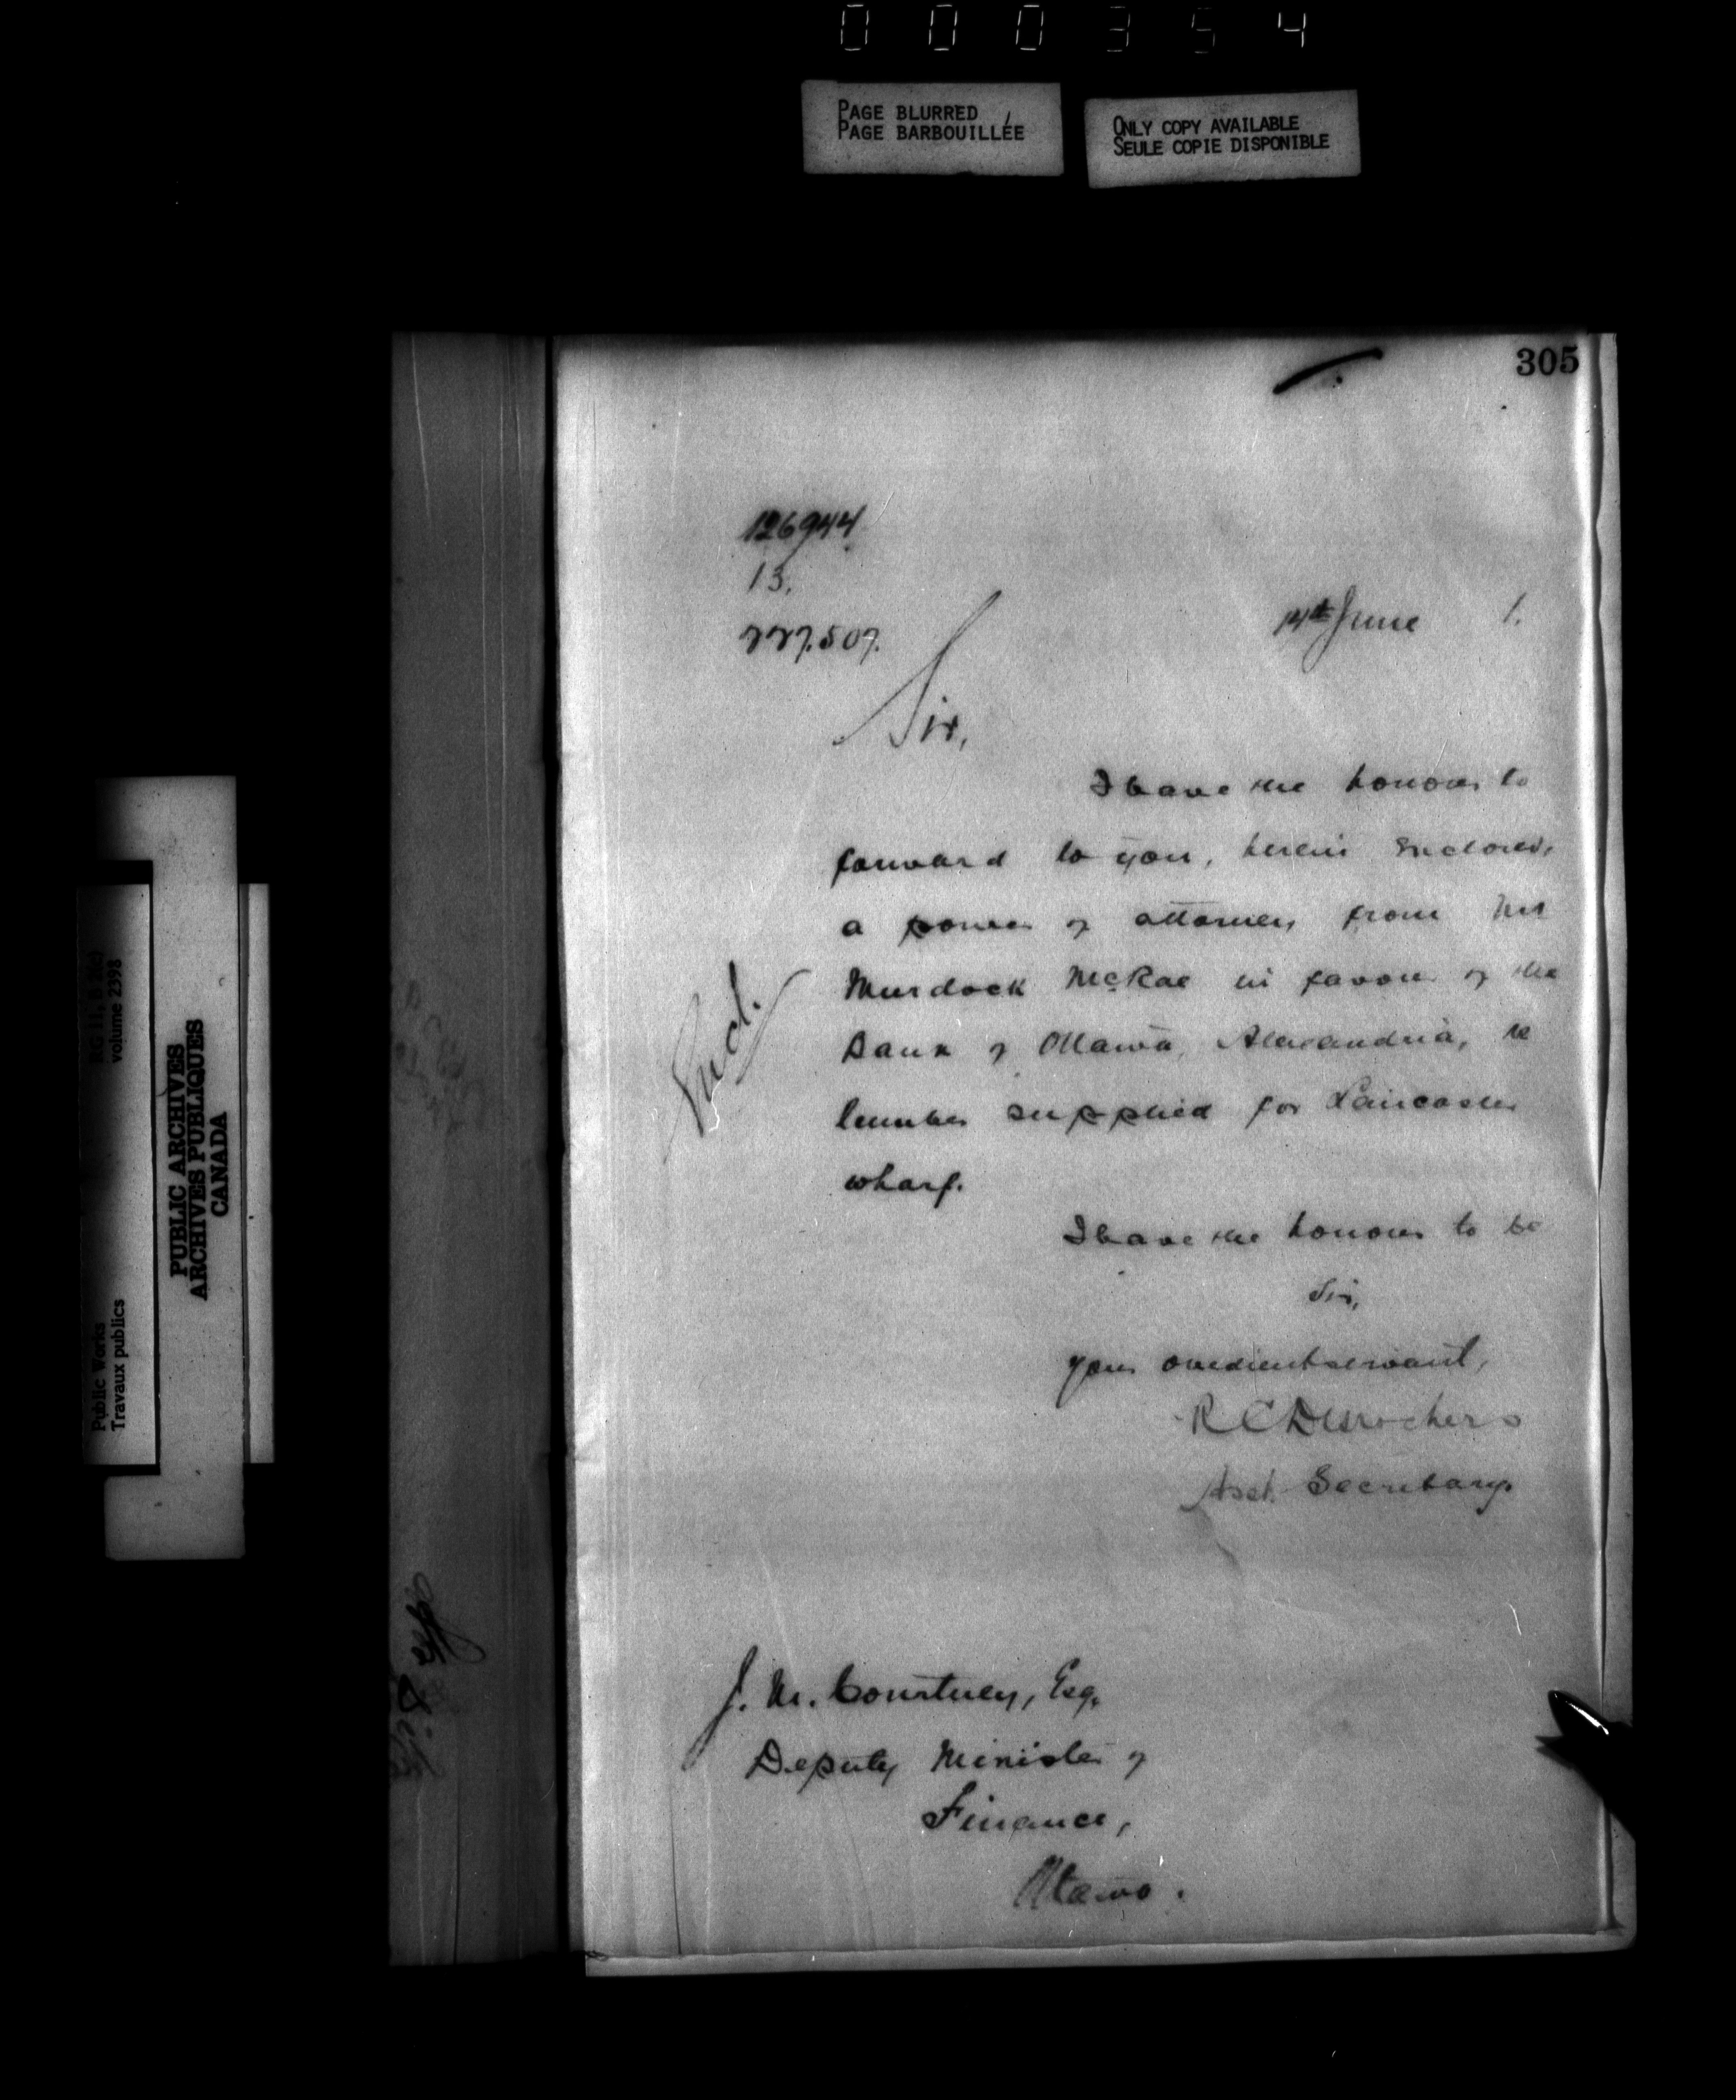 000354
PAGE BLURRED
PAGE BARBOUILLÉE
ONLY COPY AVAILABLE
SEULE COPIE DISPONIBLE
305
126944
13.
227.507.
14th June 1.
Sir,
I have the honour to
forward to you, herein enclosed,
a power of attorney from Mr
Murdock McRae in favour of the
Bank of Ottawa, Alexandria, re
lumber supplied for Lancaster
wharf.
Encl.
I have the honour to be
Sir,
your obedient servant,
R C Desrochers
Asst. Secretary.
J. M. Courtney, Esq.
Deputy Minister of
Finance,
Ottawa.
RG 11, B
volume 2398
Public Works
Travaux publics
PUBLIC ARCHIVES
ARCHIVES PUBLIQUES
CANADA